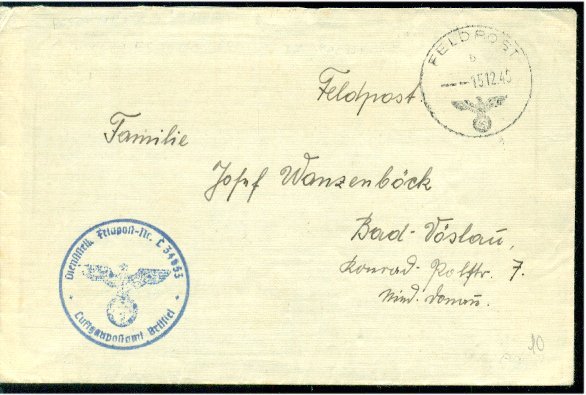 FELDPOST
b
--15.12.40
Feldpost
Familie
Josef Wanzenböck
Bad-Vöslau,
Konrad-Rolfstr. 7.
Nied. Donau.
Dienststelle Feldpost-Nr. L 34653
Luftgaupostamt Brüssel